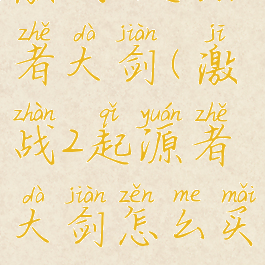 zhě dà jiàn jī
者大剑(激
zhàn qǐ yuán zhě
战2起源者
dà jiàn zěn me mǎi
大剑怎么买